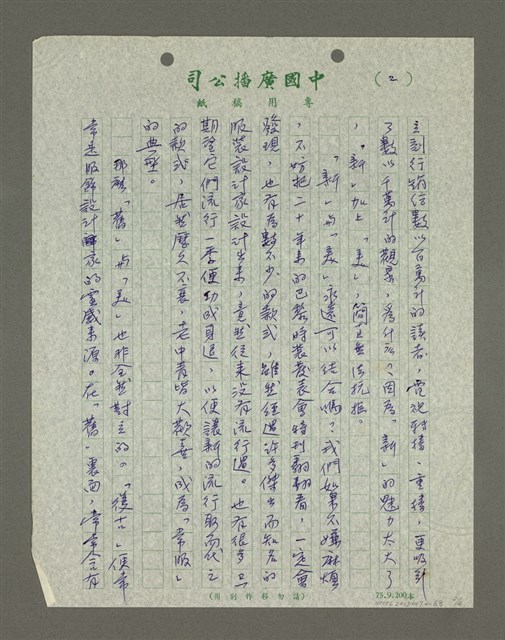 中國廣播公司
專用稿紙
(2)
立刻行銷倍數以百萬計的讀者,電視轉播、重播,更吸引
了數以千萬計的觀眾,為什麼?因為「新」的魅力太大了
,「新」加上「美」,簡直無法抗拒。
「新」與「美」永遠可以結合嗎?我們如果不嫌麻煩
,不妨把二十年來的巴黎時裝發表會特刊翻翻看,一定會
發現,也有為數不少的款式,雖然經過許多傑出而知名的
服裝設計家設計出來,竟然從來沒有流行過。也有很多只
期望它們流行一季便功成身退,以便讓新的流行取而代之
的款式,居然歷久不衰,老中青皆大歡喜,成為「常服」
的典型。
那麼「舊」與「美」也非全然對立的。「復古」便常
常是服飾設計家的靈感來源。在「舊」裏面,常常含有
(請勿移作別用)
75.9.200本